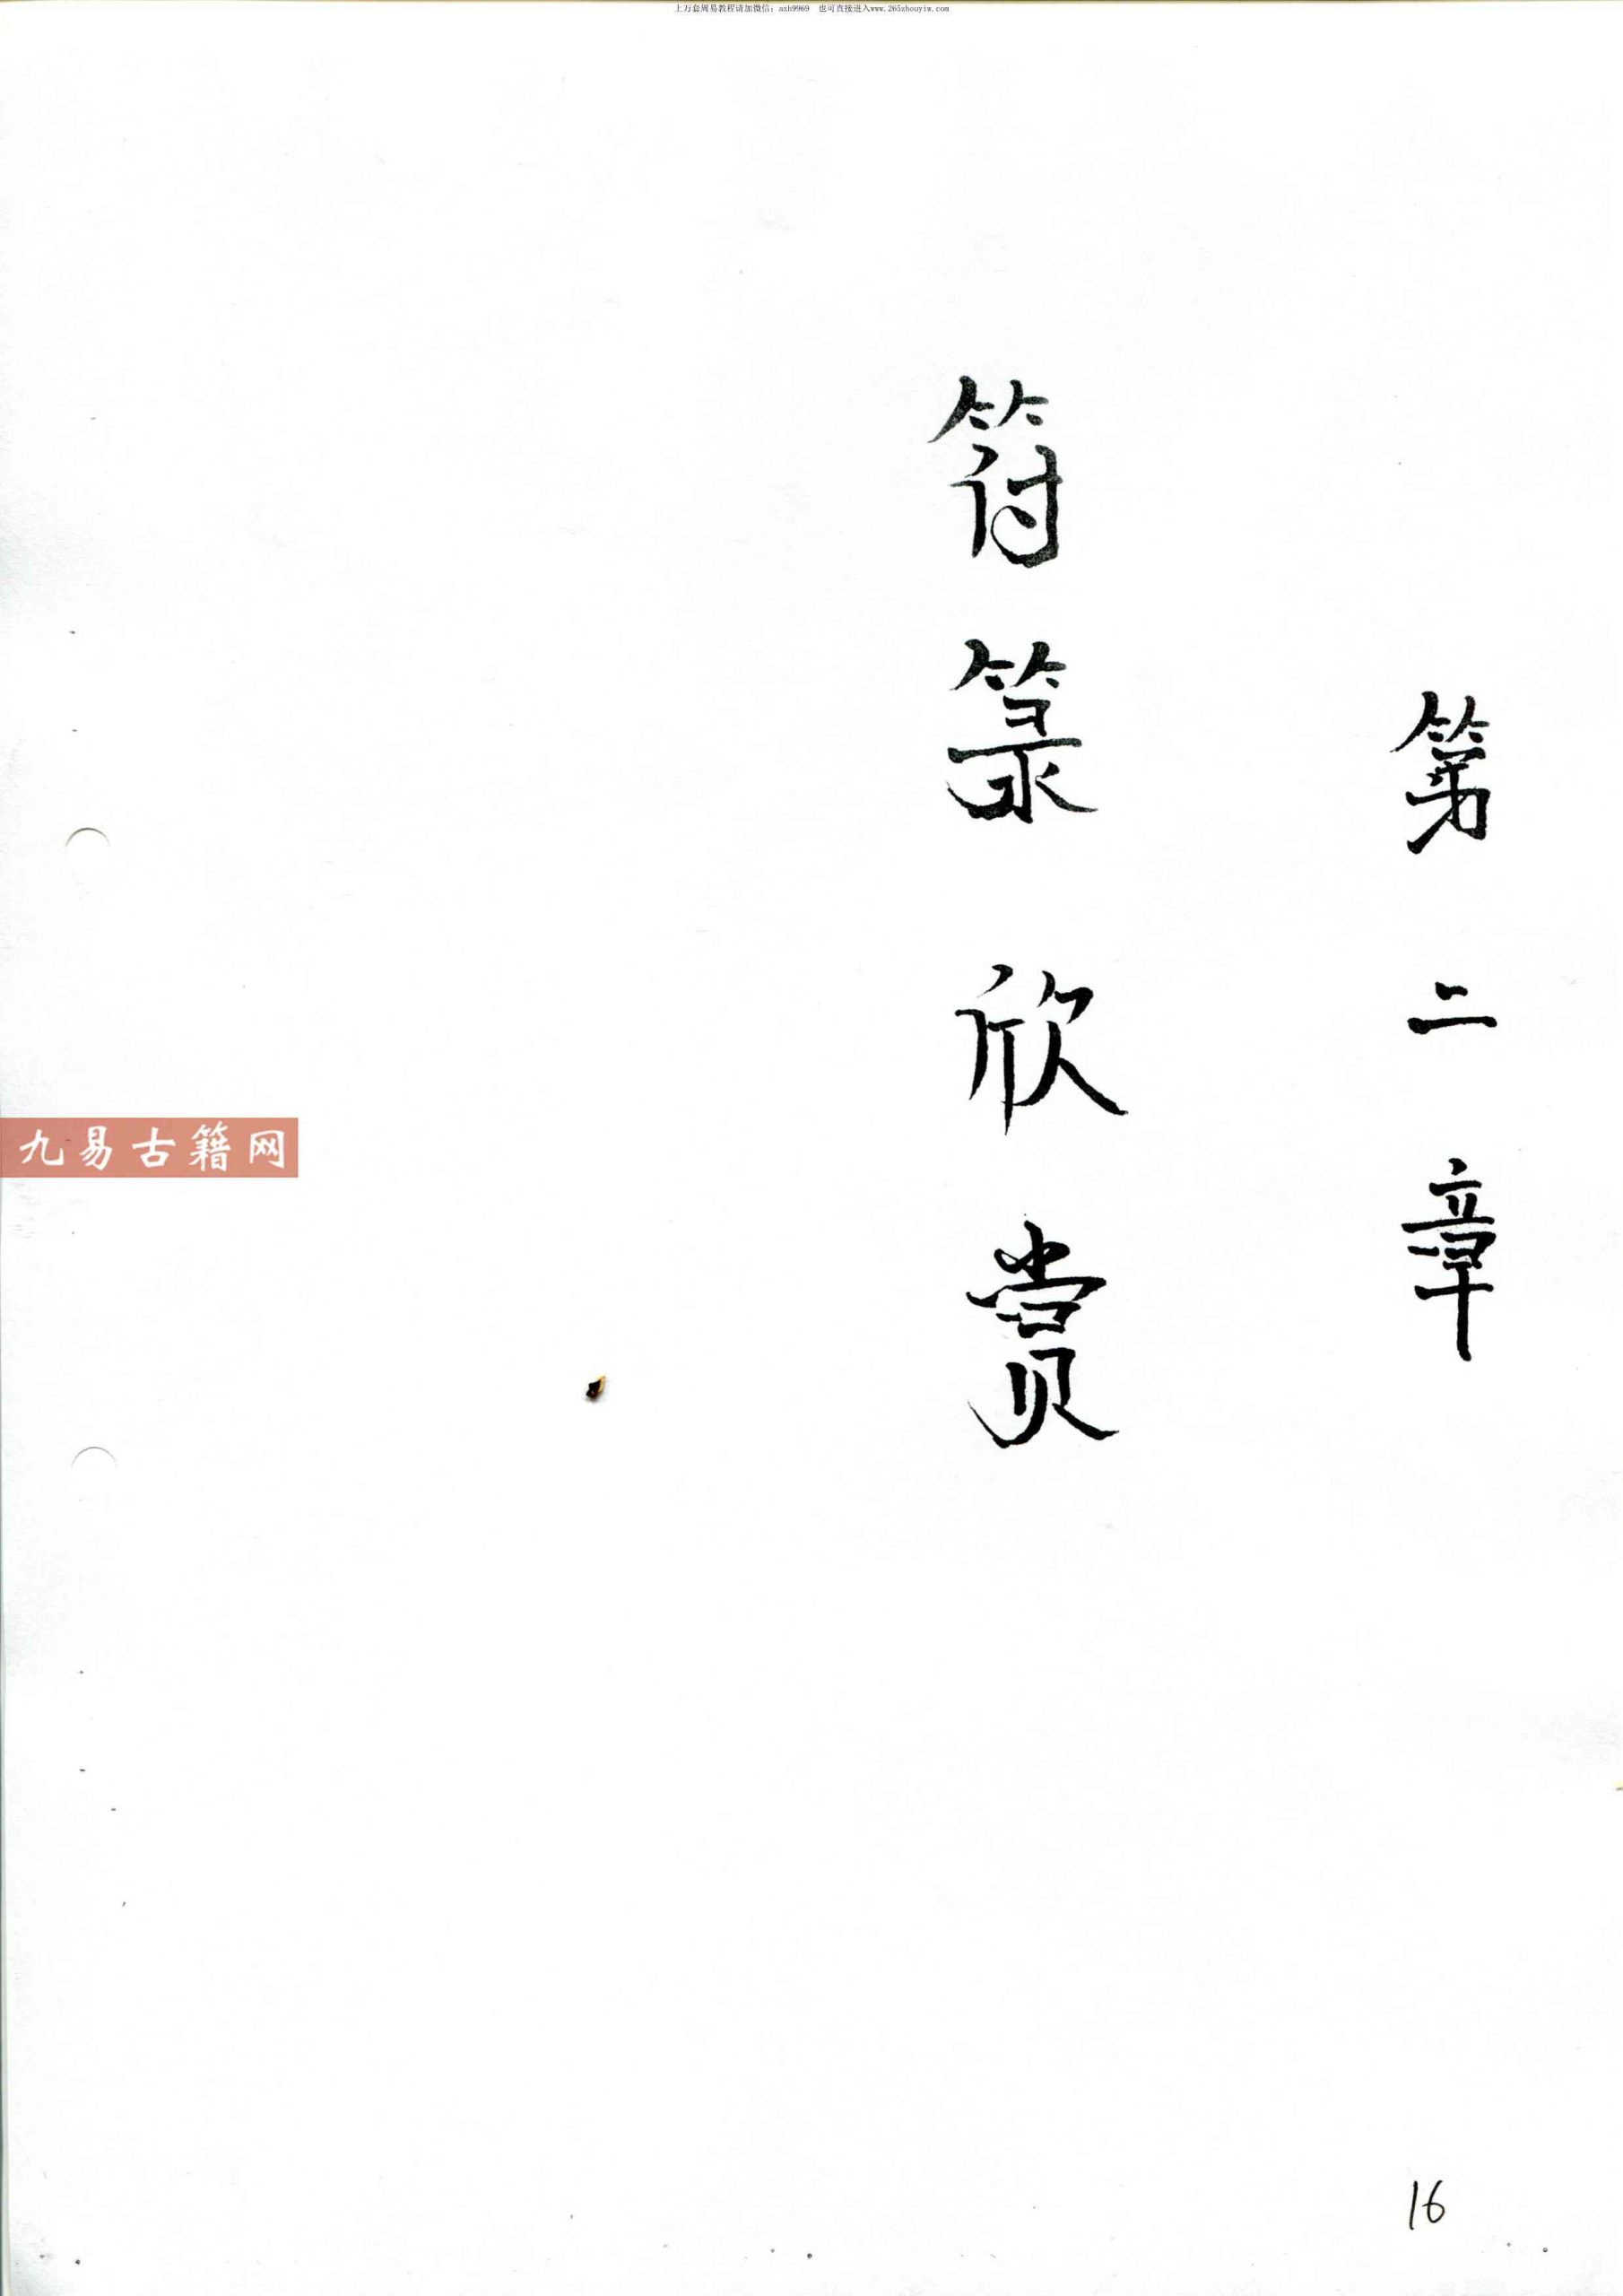 上万套周易教程请加微信：azh9969 也可直接进入www.265zhouyiw.com
第二章
符箓欣赏
九易古籍网
16